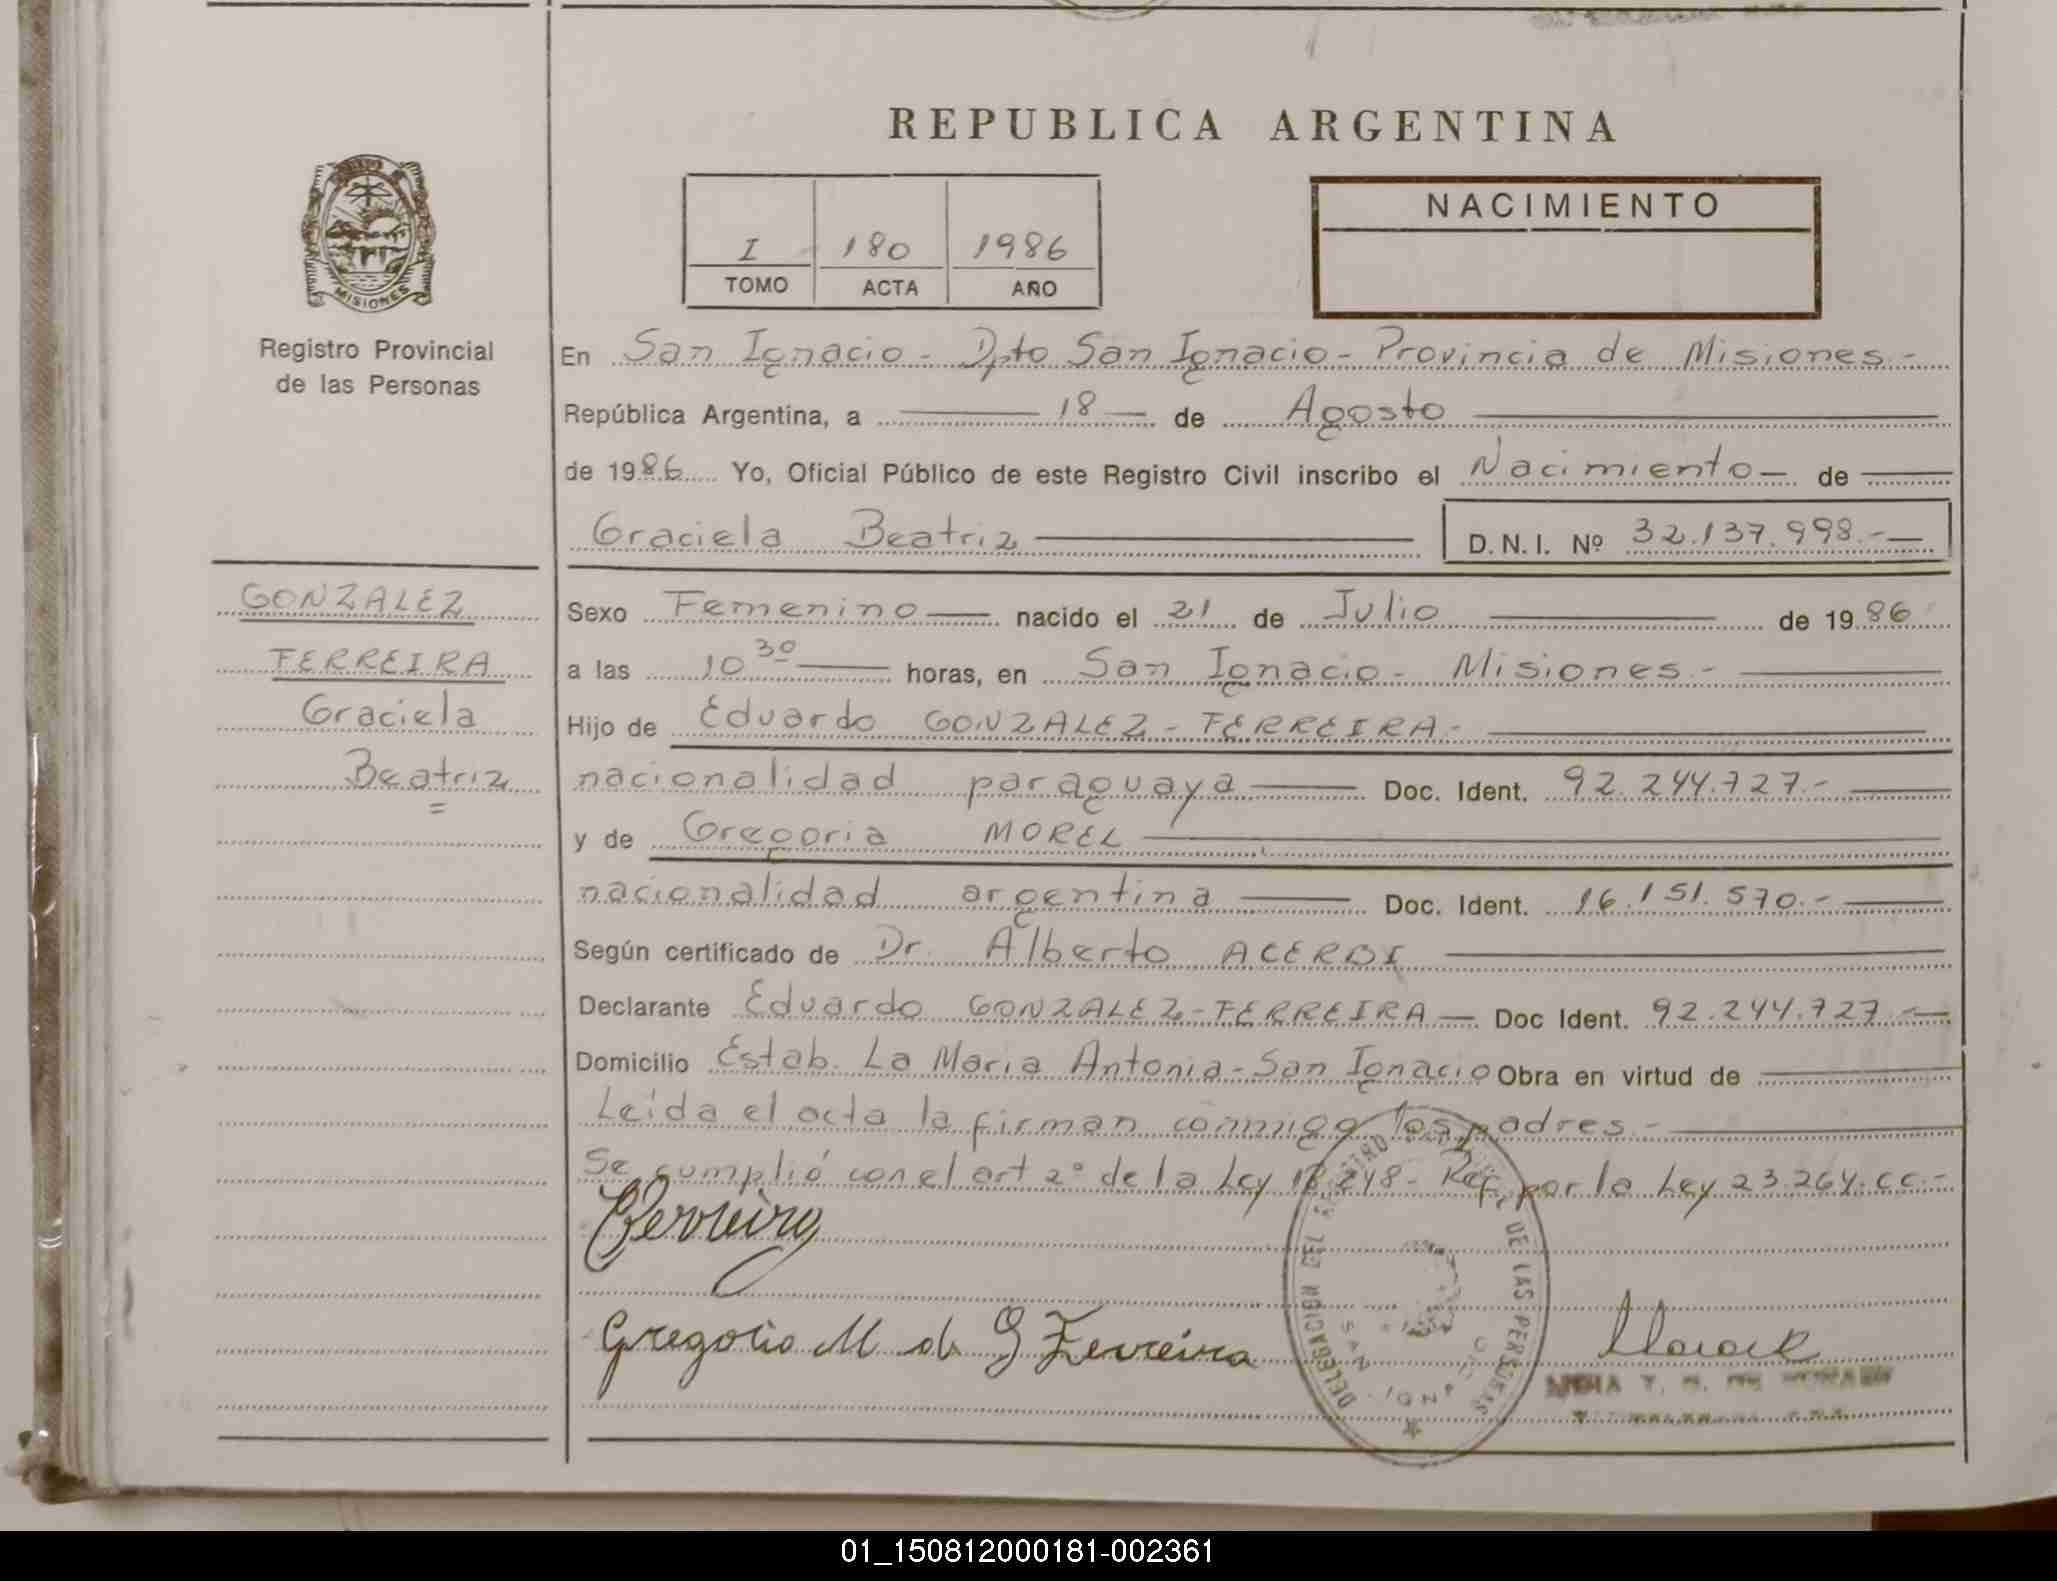 REPUBLICA ARGENTINA
MISIONES
Registro Provincial
de las Personas
I 180 1986
TOMO ACTA AÑO
NACIMIENTO
En San Ignacio - Dpto San Ignacio - Provincia de Misiones.-
República Argentina, a 18 de Agosto
de 1986 Yo, Oficial Público de este Registro Civil inscribo el Nacimiento de
Graciela Beatriz D.N.I. Nº 32.137.998.-
GONZALEZ
FERREIRA
Graciela
Beatriz
Sexo Femenino nacido el 21 de Julio de 1986
a las 10 30 horas, en San Ignacio - Misiones.-
Hijo de Eduardo GONZALEZ - FERREIRA -
nacionalidad paraguaya Doc. Ident. 92.244.727.-
y de Gregoria MOREL
nacionalidad argentina Doc. Ident. 16.151.570.-
Según certificado de Dr. Alberto ACERBI
Declarante Eduardo GONZALEZ - FERREIRA Doc Ident. 92.244.727.-
Domicilio Estab. La Maria Antonia - San Ignacio Obra en virtud de
Leída el acta la firman conmigo los padres.-
Se cumplió con el art 2° de la Ley 18.248 - Ref. por la Ley 23.264. CC.-
Ferreira
Gregoria M de G Ferreira
DELEGACION DEL REGISTRO DE LAS PERSONAS
SAN IGNACIO
01_150812000181-002361